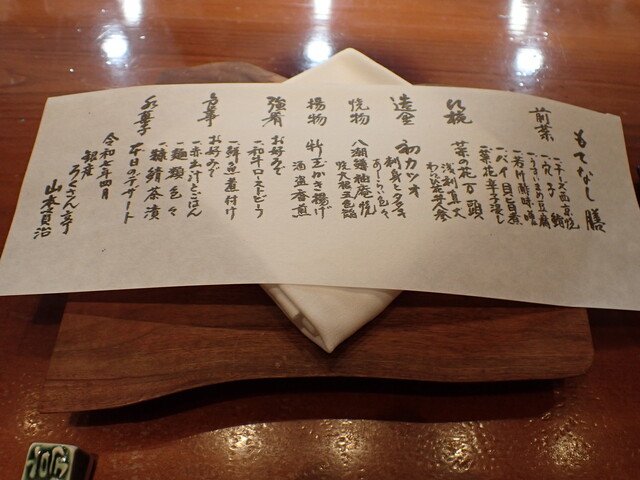 もてなし膳
前菜
一チーズ西京焼
一穴子 鮨
一うすいまめ豆腐
一若竹酢味噌
一バイ貝旨煮
一菜花辛子浸し
吸椀
菜の花万頭
浅利真丈
わらび 人参
造里
初カツオ
刺身とタタキ
あしらい色々
焼物
八潮鱒柚庵焼
揚物
竹の子かき揚げ
酒盗香煎
強肴
お好みで
一和牛ローストビーフ
一鮮魚煮付け
食事
お好みで
一赤出汁とごはん
一麺類色々
一雑錆茶漬
水菓子
本日のデザート
令和七年四月
銀座 ろくさん亭
山本真治